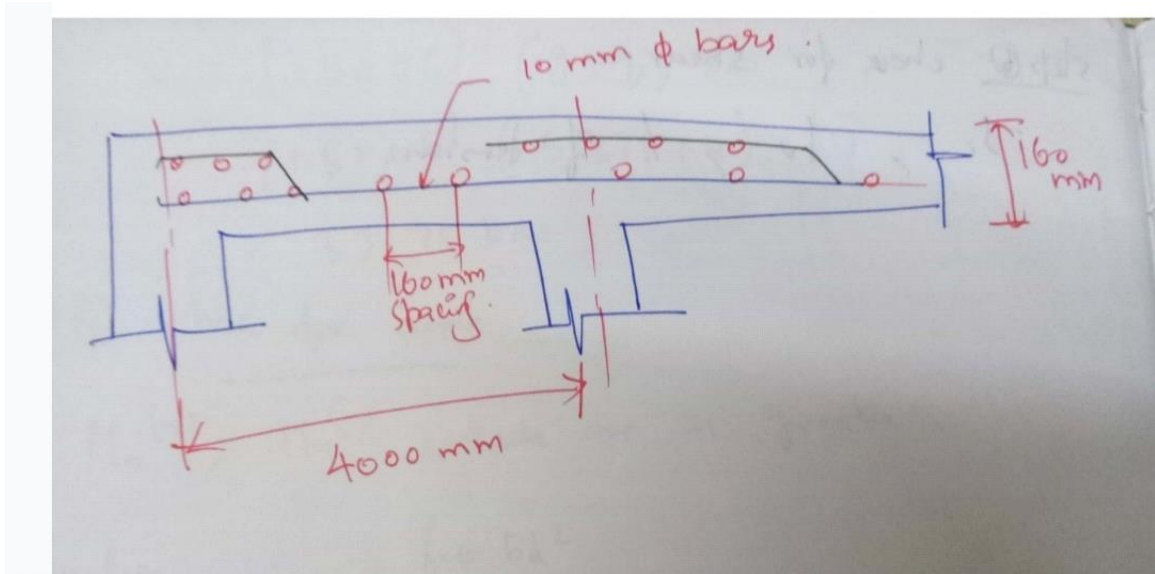 10 mm ϕ bars.
160
mm
160 mm
spacing.
4000 mm